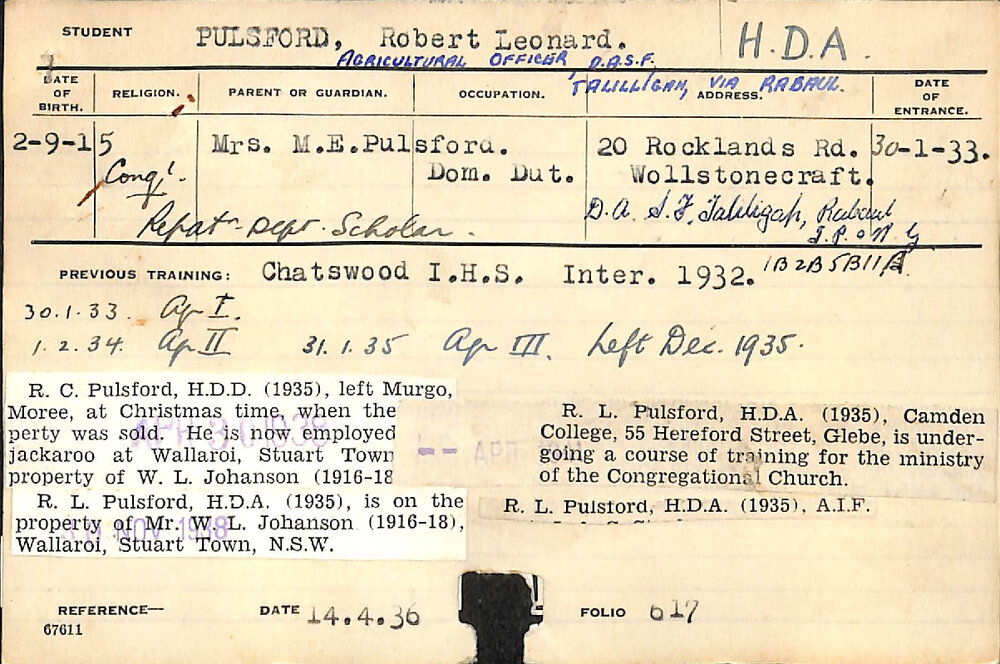 STUDENT PULSFORD, Robert Leonard. H.D.A.
AGRICULTURAL OFFICER D.A.S.F.
TALILLIGAN, VIA RABAUL.
DATE OF BIRTH. RELIGION. PARENT OR GUARDIAN. OCCUPATION. ADDRESS. DATE OF ENTRANCE.
2-9-15 Mrs. M.E.Pulsford. 20 Rocklands Rd. 30-1-33.
Cong'l. Dom. Dut. Wollstonecraft.
D.A.S.F. Taliligap, Rabaul
Repatn Dept. Scholar. T.P. & N.G.
PREVIOUS TRAINING: Chatswood I.H.S. Inter. 1932. 1B 2B 5B 11A
30.1.33. Ag I.
1.2.34. Ag II 31.1.35 Ag III. Left Dec. 1935.
R. C. Pulsford, H.D.D. (1935), left Murgo,
Moree, at Christmas time, when the
perty was sold. He is now employed
jackaroo at Wallaroi, Stuart Town
property of W. L. Johanson (1916-18
R. L. Pulsford, H.D.A. (1935), is on the
property of Mr. W. L. Johanson (1916-18),
Wallaroi, Stuart Town, N.S.W.
NOV 1938
APR
R. L. Pulsford, H.D.A. (1935), Camden
College, 55 Hereford Street, Glebe, is under-
going a course of training for the ministry
of the Congregational Church.
R. L. Pulsford, H.D.A. (1935), A.I.F.
REFERENCE— DATE 14.4.36 FOLIO 617
67611